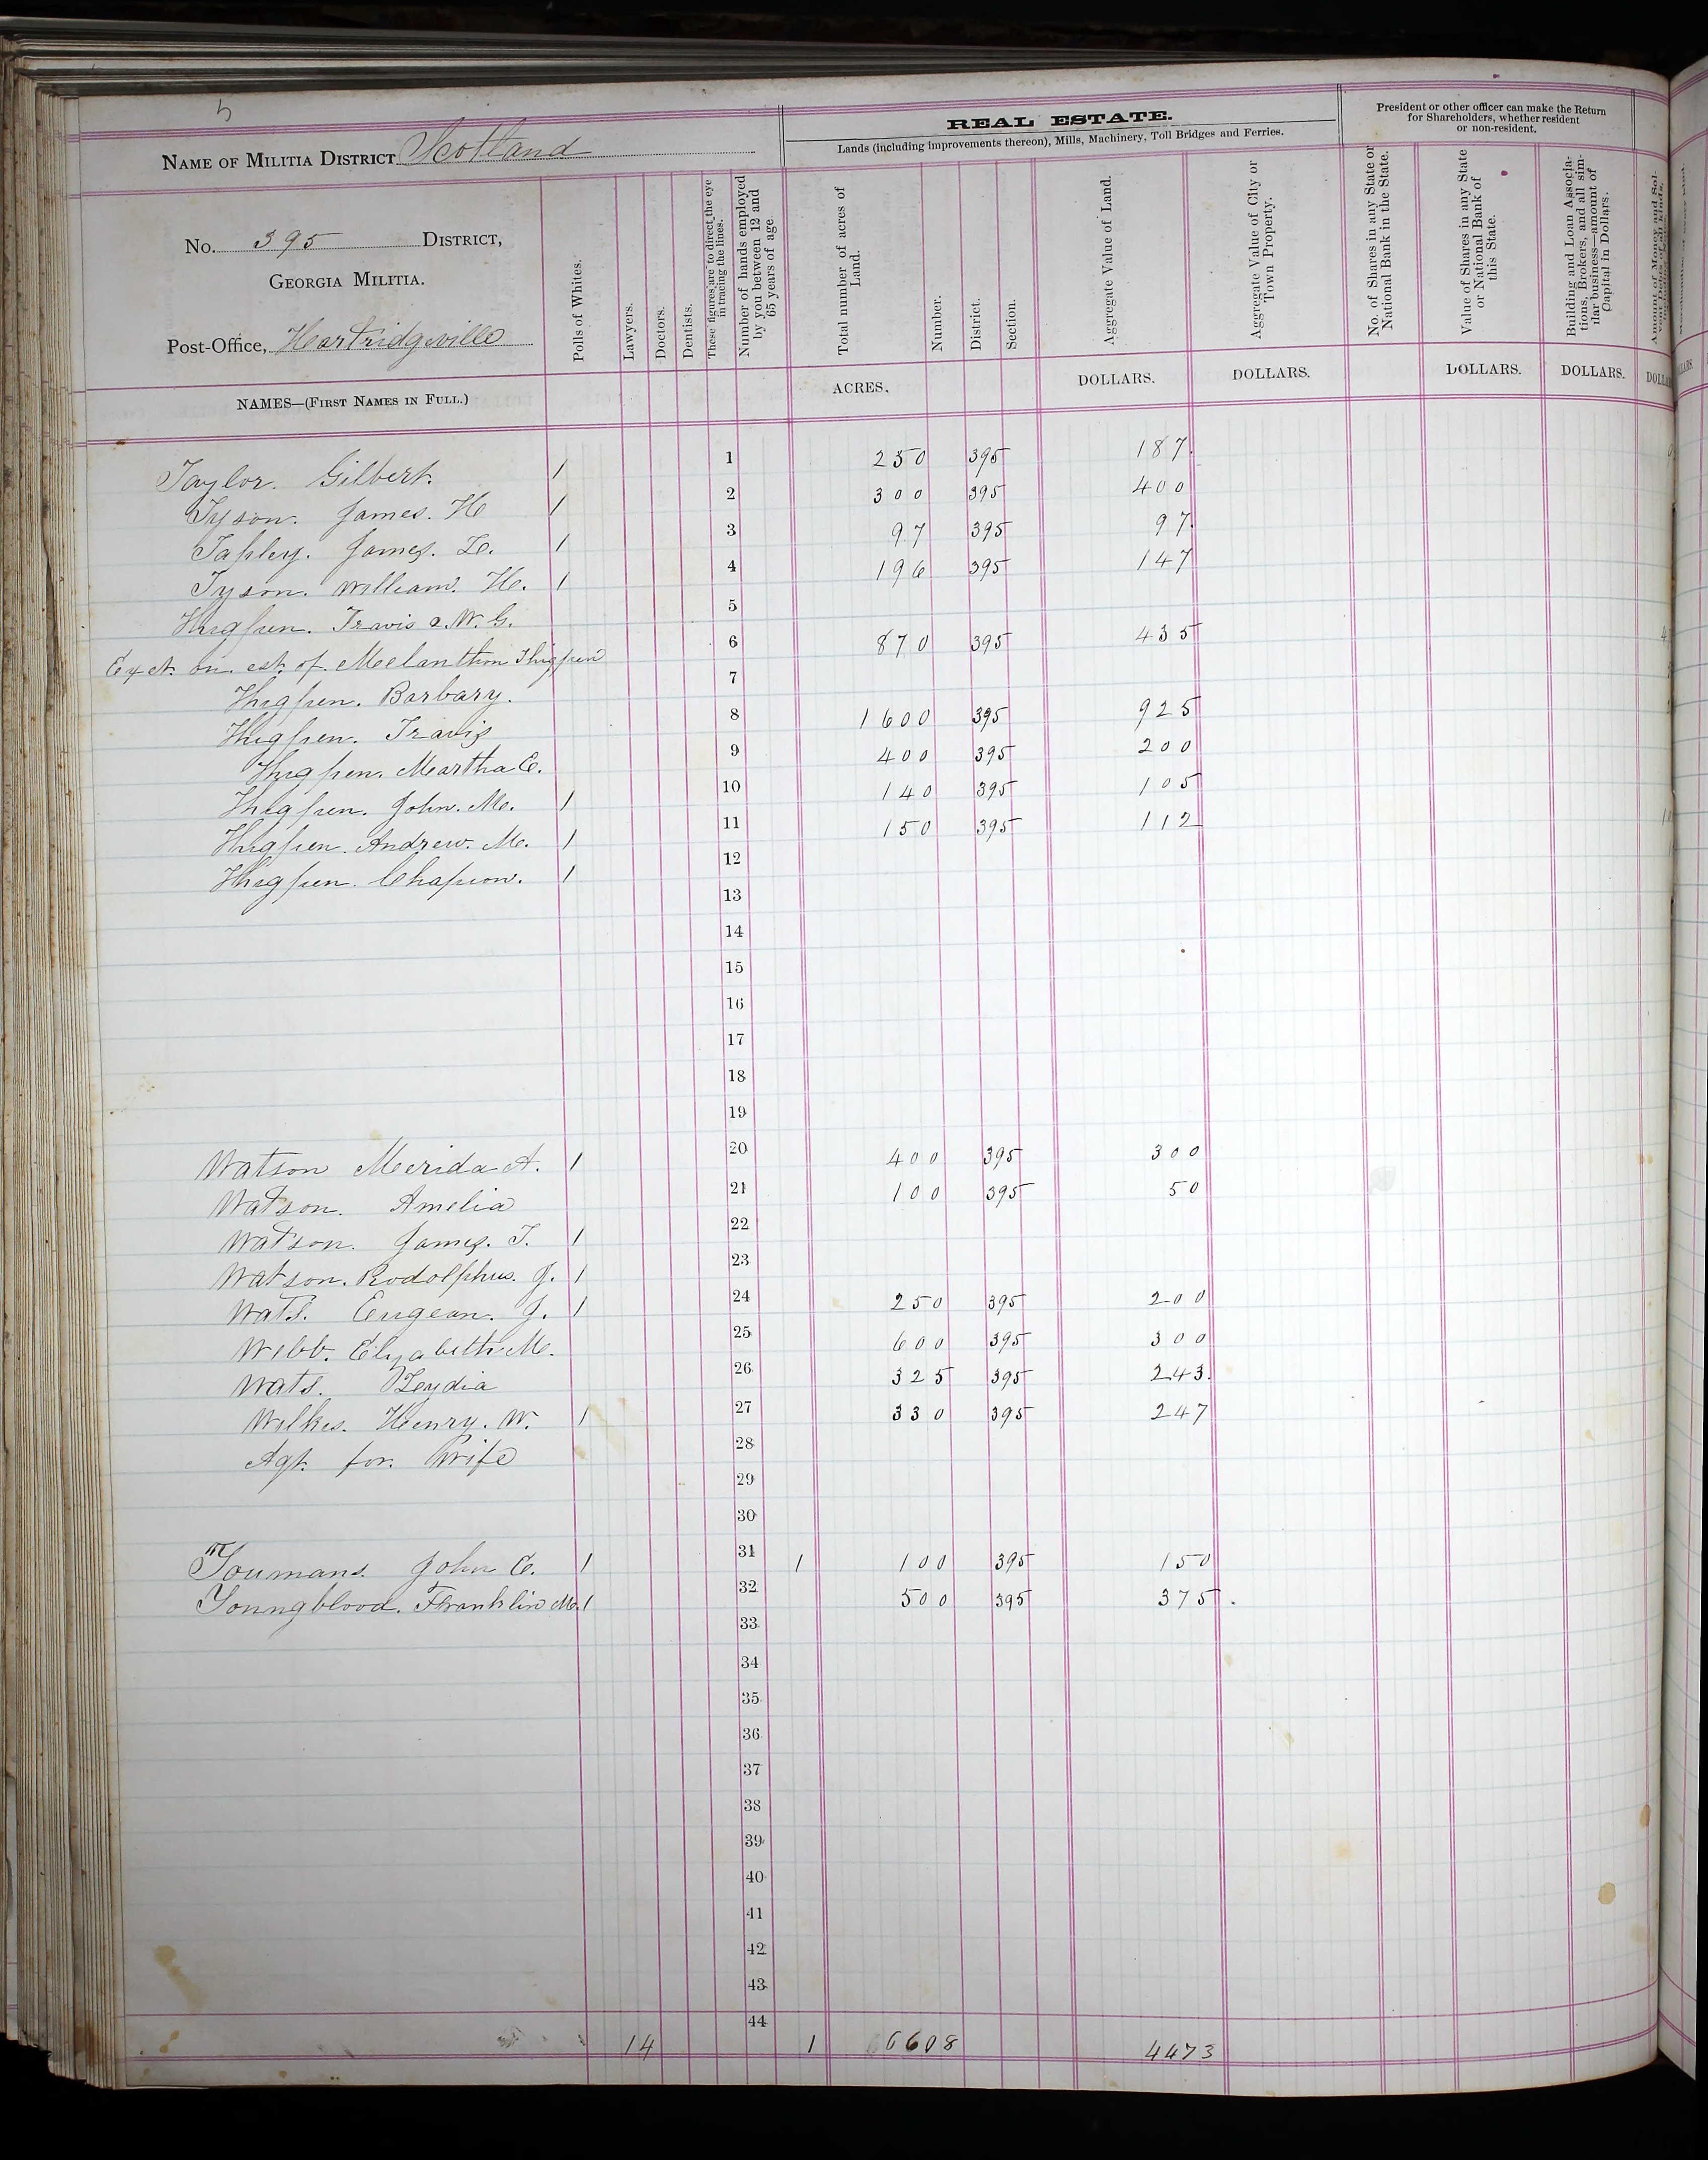 5
NAME OF MILITIA DISTRICT Scotland
No. 395 DISTRICT,
GEORGIA MILITIA.
Post-Office, Hartridgville
NAMES—(FIRST NAMES IN FULL.)
Polls of Whites.
Lawyers.
Doctors.
Dentists.
These figures are to direct the eye in tracing the lines.
Number of hands employed by you between 12 and 65 years of age.
REAL ESTATE.
Lands (including improvements thereon), Mills, Machinery, Toll Bridges and Ferries.
Total number of acres of Land.
Number.
District.
Section.
Aggregate Value of Land.
Aggregate Value of City or Town Property.
President or other officer can make the Return for Shareholders, whether resident or non-resident.
No. of Shares in any State or National Bank in the State.
Value of Shares in any State or National Bank of this State.
Building and Loan Associations, Brokers, and all similar business—amount of Capital in Dollars.
ACRES. DOLLARS. DOLLARS. DOLLARS. DOLLARS.
Taylor. Gilbert. 1 1 250 395 187.
Tyson. James. H 1 2 300 395 400
Tapley. James. L. 1 3 97 395 97.
Tyson. William. H. 1 4 196 395 147
Thigpen. Travis & W. G. 5
Exct. on est. of Melanthon Thigpen 6 870 395 435
Thigpen. Barbary. 7
Thigpen. Travis 8 1600 395 925
Thigpen. Martha C. 9 400 395 200
Thigpen. John. M. 1 10 140 395 105
Thigpen. Andrew. M. 1 11 150 395 112
Thigpen. Chapion. 1 12
13
14
15
16
17
18
19
Watson Merida A. 1 20 400 395 300
Watson. Amelia 21 100 395 50
Watson. James. T. 1 22
Watson. Rodolphus. J. 1 23
Wats. Eugean. J. 1 24 250 395 200
Webb. Elyabeth M. 25 600 395 300
Wats. Leydia 26 325 395 243.
Wilkes. Henry. W. 1 27 330 395 247
Agt. for. Wife 28
29
30
Youmans John C. 1 31 1 100 395 150
Youngblood. Franklin M. 1 32 500 395 375.
33
34
35
36
37
38
39
40
41
42
43
44
14 1 6608 4473